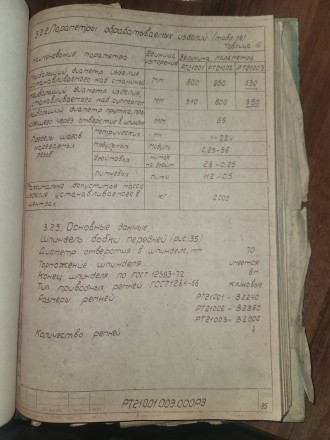 3.2.2. Параметры обрабатываемых изделий (табл. 16)
Таблица 16
Наименование параметра Единица измерения Величина параметра
РТ21001 РТ21002 РТ21003
Наибольший диаметр изделия, устанавливаемого над станиной мм 800
Наибольший диаметр изделия, устанавливаемого над суппортом мм 510 600
Наибольший диаметр прутка, проходящего через отверстие в шпинделе мм 65
Пределы шагов нарезаемых резьб
метрических мм
модульных модуль
дюймовых ниток на дюйм 28 - 0.25
питчевых питч 112 - 0.5
Максимально допустимая масса изделия устанавливаемого в центрах кг
3.2.3. Основные данные
Шпиндель бабки передней (рис. 35)
Диаметр отверстия в шпинделе, мм 70
Торможение шпинделя имеется
Конец шпинделя по ГОСТ 12593-72
Тип приводных ремней ГОСТ 1284-68 клиновые
Размеры ремней РТ21001 - В2240
РТ21002 - В2360
РТ21003 - В2000
Количество ремней
РТ21001.009.000РЭ
35